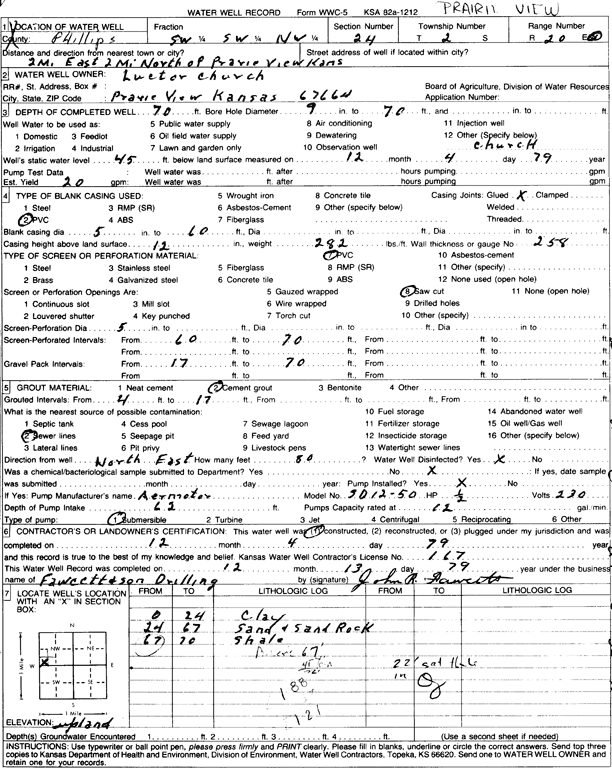 PRAIRIE VIEW
WATER WELL RECORD Form WWC-5 KSA 82a-1212
1 LOCATION OF WATER WELL Fraction Section Number Township Number Range Number
County: Phillips SW ¼ SW ¼ NW ¼ 24 T 2 S R 20 E
Distance and direction from nearest town or city? Street address of well if located within city?
2Mi East 2Mi North of Pravie View Kans
2 WATER WELL OWNER: Luctor Church
RR#, St. Address, Box # : Board of Agriculture, Division of Water Resources
City, State, ZIP Code : Pravie View Kansas 67664 Application Number:
3 DEPTH OF COMPLETED WELL 70 ft. Bore Hole Diameter 9 in. to 70 ft., and in. to ft.
Well Water to be used as: 5 Public water supply 8 Air conditioning 11 Injection well
1 Domestic 3 Feedlot 6 Oil field water supply 9 Dewatering 12 Other (Specify below)
2 Irrigation 4 Industrial 7 Lawn and garden only 10 Observation well Church
Well's static water level 45 ft. below land surface measured on 12 month 4 day 79 year
Pump Test Data : Well water was ft. after hours pumping gpm
Est. Yield 20 gpm: Well water was ft. after hours pumping gpm
4 TYPE OF BLANK CASING USED: 5 Wrought iron 8 Concrete tile Casing Joints: Glued X Clamped
1 Steel 3 RMP (SR) 6 Asbestos-Cement 9 Other (specify below) Welded
2 PVC 4 ABS 7 Fiberglass Threaded
Blank casing dia 5 in. to 60 ft., Dia in. to ft., Dia in. to ft.
Casing height above land surface 12 in., weight 282 lbs./ft. Wall thickness or gauge No 258
TYPE OF SCREEN OR PERFORATION MATERIAL: 7 PVC 10 Asbestos-cement
1 Steel 3 Stainless steel 5 Fiberglass 8 RMP (SR) 11 Other (specify)
2 Brass 4 Galvanized steel 6 Concrete tile 9 ABS 12 None used (open hole)
Screen or Perforation Openings Are: 5 Gauzed wrapped 8 Saw cut 11 None (open hole)
1 Continuous slot 3 Mill slot 6 Wire wrapped 9 Drilled holes
2 Louvered shutter 4 Key punched 7 Torch cut 10 Other (specify)
Screen-Perforation Dia 5 in. to ft., Dia in. to ft., Dia in. to ft.
Screen-Perforated Intervals: From 60 ft. to 70 ft., From ft. to ft.
From ft. to ft., From ft. to ft.
Gravel Pack Intervals: From 17 ft. to 70 ft., From ft. to ft.
From ft. to ft., From ft. to ft.
5 GROUT MATERIAL: 1 Neat cement 2 Cement grout 3 Bentonite 4 Other
Grouted Intervals: From 4 ft. to 17 ft., From ft. to ft., From ft. to ft.
What is the nearest source of possible contamination: 10 Fuel storage 14 Abandoned water well
1 Septic tank 4 Cess pool 7 Sewage lagoon 11 Fertilizer storage 15 Oil well/Gas well
2 Sewer lines 5 Seepage pit 8 Feed yard 12 Insecticide storage 16 Other (specify below)
3 Lateral lines 6 Pit privy 9 Livestock pens 13 Watertight sewer lines
Direction from well North East How many feet 80 ? Water Well Disinfected? Yes X No
Was a chemical/bacteriological sample submitted to Department? Yes No X If yes, date sample
was submitted month day year: Pump Installed? Yes X No
If Yes: Pump Manufacturer's name Aermotor Model No. HP ½ Volts 230
Depth of Pump Intake 62 ft. Pumps Capacity rated at 12 gal./min.
Type of pump: 1 Submersible 2 Turbine 3 Jet 4 Centrifugal 5 Reciprocating 6 Other
6 CONTRACTOR'S OR LANDOWNER'S CERTIFICATION: This water well was (1) constructed, (2) reconstructed, or (3) plugged under my jurisdiction and was
completed on 12 month 4 day 79 year
and this record is true to the best of my knowledge and belief. Kansas Water Well Contractor's License No. 167
This Water Well Record was completed on 12 month 13 day 79 year under the business
name of Fawcett & son Drilling by (signature) John R. Fawcett
7 LOCATE WELL'S LOCATION WITH AN "X" IN SECTION BOX: FROM TO LITHOLOGIC LOG FROM TO LITHOLOGIC LOG
0 24 Clay
24 67 Sand & Sand Rock
67 70 Shale
67'
188
121
N
NW NE
W E
SW SE
S
1 Mile
1 Mile
ELEVATION: upland
Depth(s) Groundwater Encountered 1 ft. 2 ft. 3 ft. 4 ft. (Use a second sheet if needed)
INSTRUCTIONS: Use typewriter or ball point pen, please press firmly and PRINT clearly. Please fill in blanks, underline or circle the correct answers. Send top three
copies to Kansas Department of Health and Environment, Division of Environment, Water Well Contractors, Topeka, KS 66620. Send one to WATER WELL OWNER and
retain one for your records.